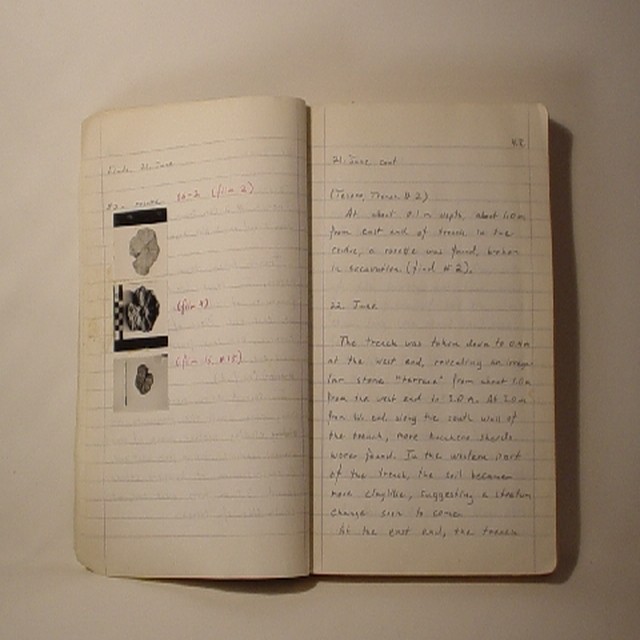 Finds, 21 June
#2 - rosette
(film 2)
(film 4)
21 June cont
(Tesoro, Trench #2)
At about 0.1m depth, about 1.0m
from east end of trench in the
centre, a rosette was found, broken
in excavation (find #2).
22 June
The trench was taken down to 0.4m
at the west end, revealing an irregu
lar stone "terrace" from about 1.0m
from the west end to 2.0m. At 2.0m
from W. end along the south wall of
the trench, more bucchero sherds
were found. In the western part
of the trench, the soil became
more claylike, suggesting a stratum
change soon to come.
At the east end, the trench